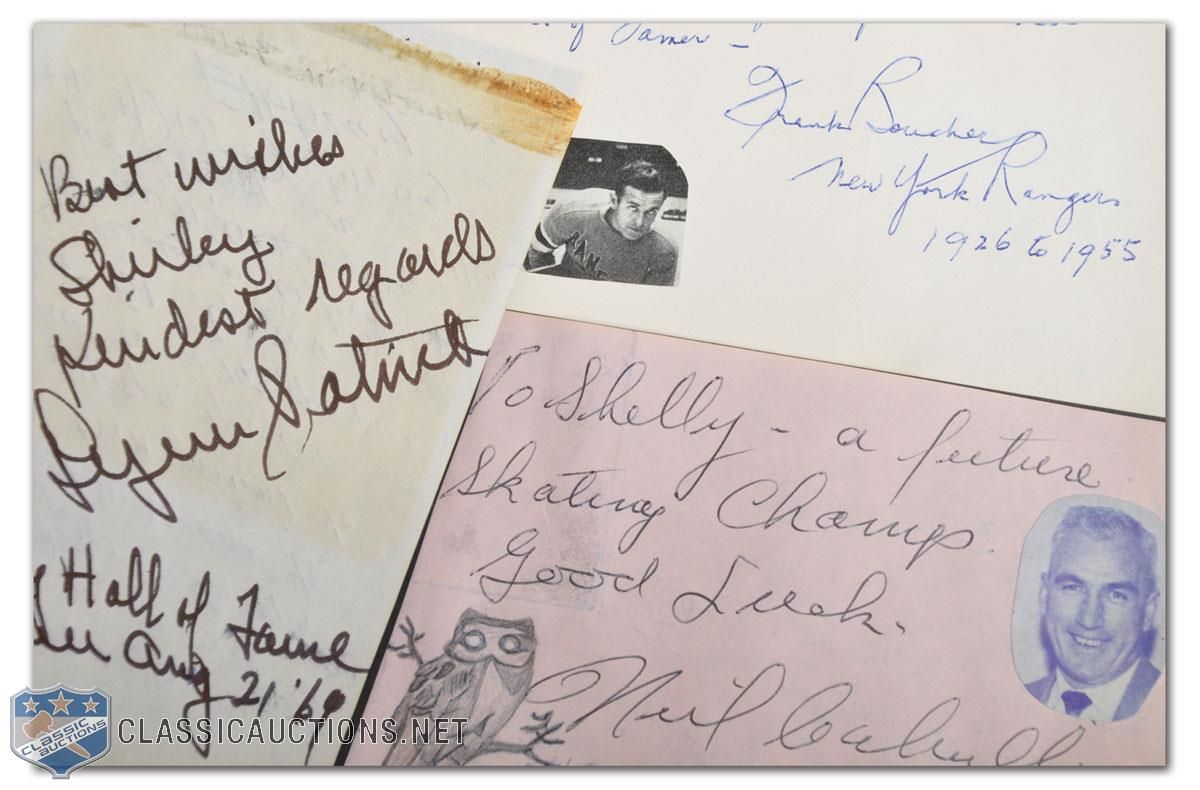 Best wishes
Shirley
Kindest regards
Lynn Patrick
Hall of Fame
Aug 21 '69
of Famer -
Frank Boucher
New York Rangers
1926 to 1955
RANG
To Shelly - a future
Skating Champ.
Good Luck.
Neil
CLASSIC
AUCTIONS
CLASSICAUCTIONS.NET